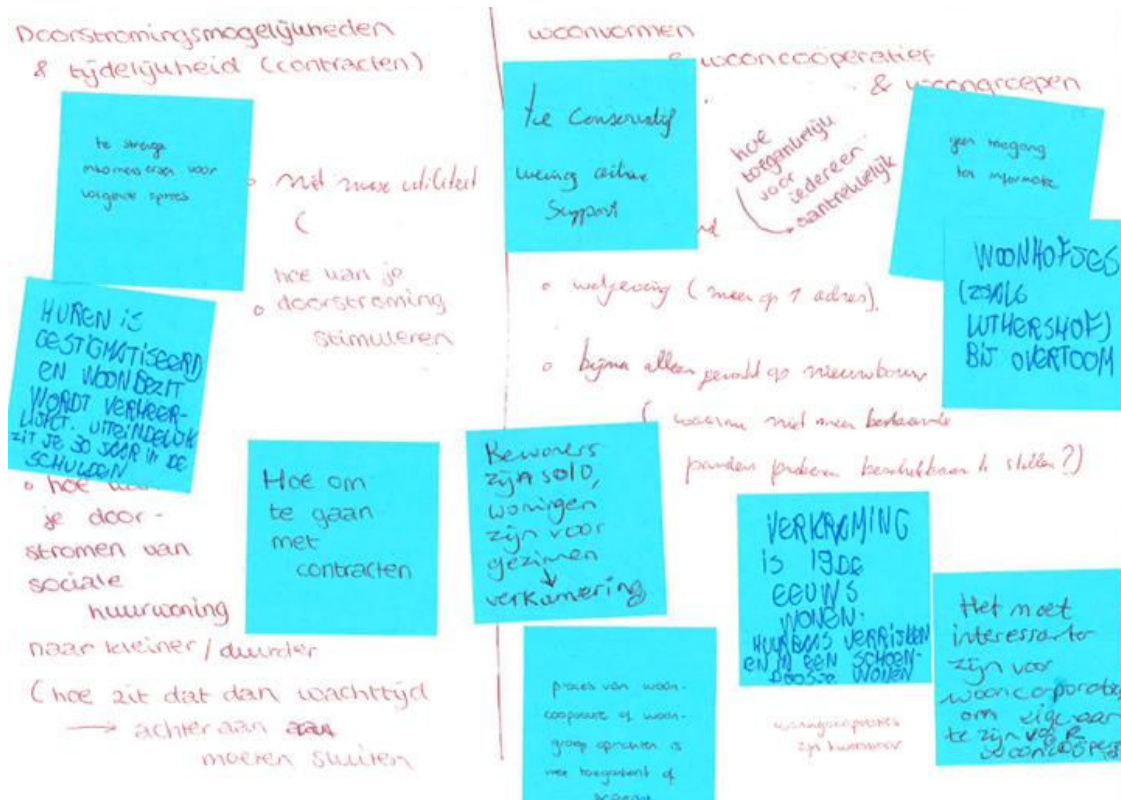 Doorstromingsmogelijkheden
& tijdelijkheid (contracten)
te strenge
inkomenseisen voor
volgende
HUREN IS
GESTIGMATISEERD
EN WOONBEZIT
WORDT VERHEER-
LIJKT. UITEINDELIJK
ZIT JE 30 JAAR IN DE
SCHULDEN
niet meer utiliteit
(
hoe kan je
doorstroming
stimuleren
hoe
je door-
stromen van
sociale
huurwoning
naar kleiner / duurder
(hoe zit dat dan wachttijd
→ achter aan
moeten sluiten
Hoe om
te gaan
met
contracten
woonvormen
& wooncoöperatief
& woongroepen
te conservatief
weinig
support
hoe
toegankelijk
voor
iedereen
→ aantrekkelijk
geen toegang
tot informatie
WOONHOFJES
(ZOALS
LUTHERSHOF)
BIJ OVERTOOM
wetgeving (meer op 1 adres).
bijna alleen gericht op nieuwbouw
(waarom niet meer bestaande
panden proberen beschikbaar te stellen?)
Bewoners
zijn solo,
woningen
zijn voor
gezinnen
↓
verkamering
VERKAMING
IS 19DE
EEUWS
WONEN.
HUURBAAS VERRIJKEN
EN IN EEN SCHOEN-
DOOSJE WONEN
Het moet
interessanter
zijn voor
wooncorporaties
om eigenaar
te zijn voor
proces van woon-
of woon-
groep oprichten is
toegankelijk of